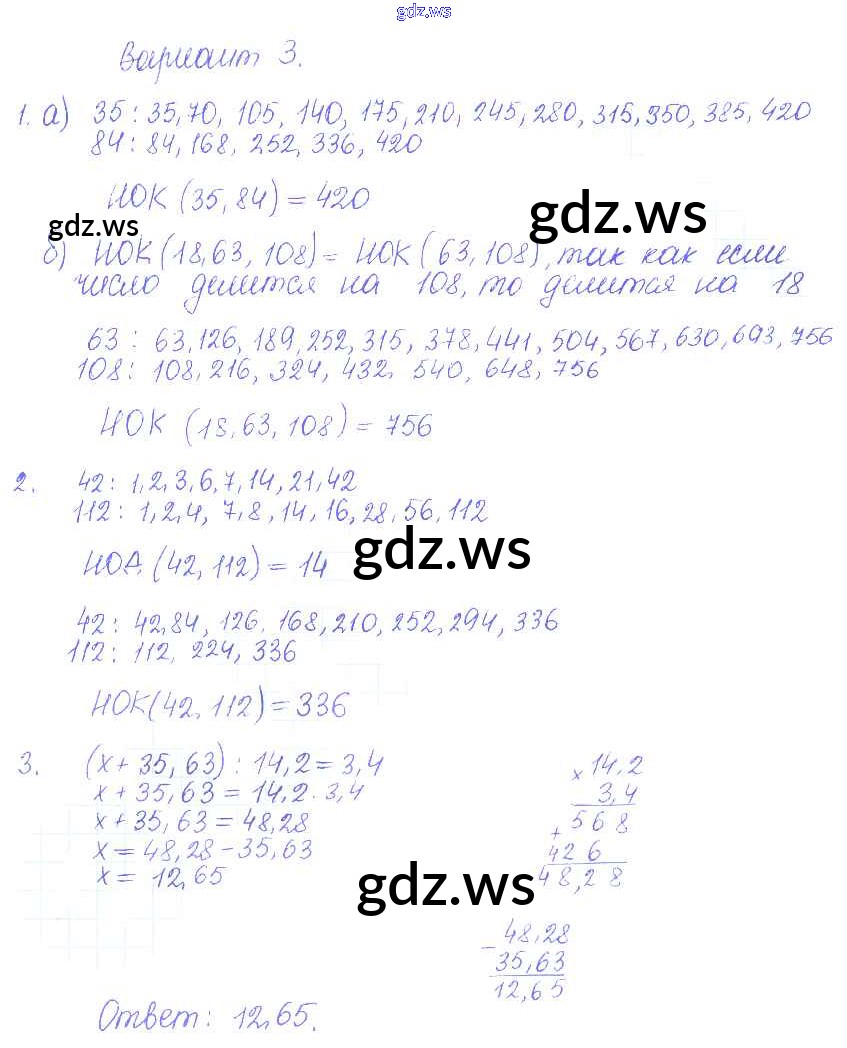 gdz.ws
Вариант 3.
1. а) 35 : 35, 70, 105, 140, 175, 210, 245, 280, 315, 350, 385, 420
84 : 84, 168, 252, 336, 420
НОК (35, 84) = 420
gdz.ws
gdz.ws
б) НОК (18, 63, 108) = НОК (63, 108), так как если
число делится на 108, то делится на 18
63 : 63, 126, 189, 252, 315, 378, 441, 504, 567, 630, 693, 756
108 : 108, 216, 324, 432, 540, 648, 756
НОК (18, 63, 108) = 756
2. 42 : 1, 2, 3, 6, 7, 14, 21, 42
112 : 1, 2, 4, 7, 8, 14, 16, 28, 56, 112
gdz.ws
НОД (42, 112) = 14
42 : 42, 84, 126, 168, 210, 252, 294, 336
112 : 112, 224, 336
НОК (42, 112) = 336
3. (x + 35,63) : 14,2 = 3,4
x + 35,63 = 14,2 · 3,4
x + 35,63 = 48,28
x = 48,28 - 35,63
x = 12,65
× 14,2
3,4
+ 568
426
48,28
gdz.ws
- 48,28
35,63
12,65
Ответ: 12,65.